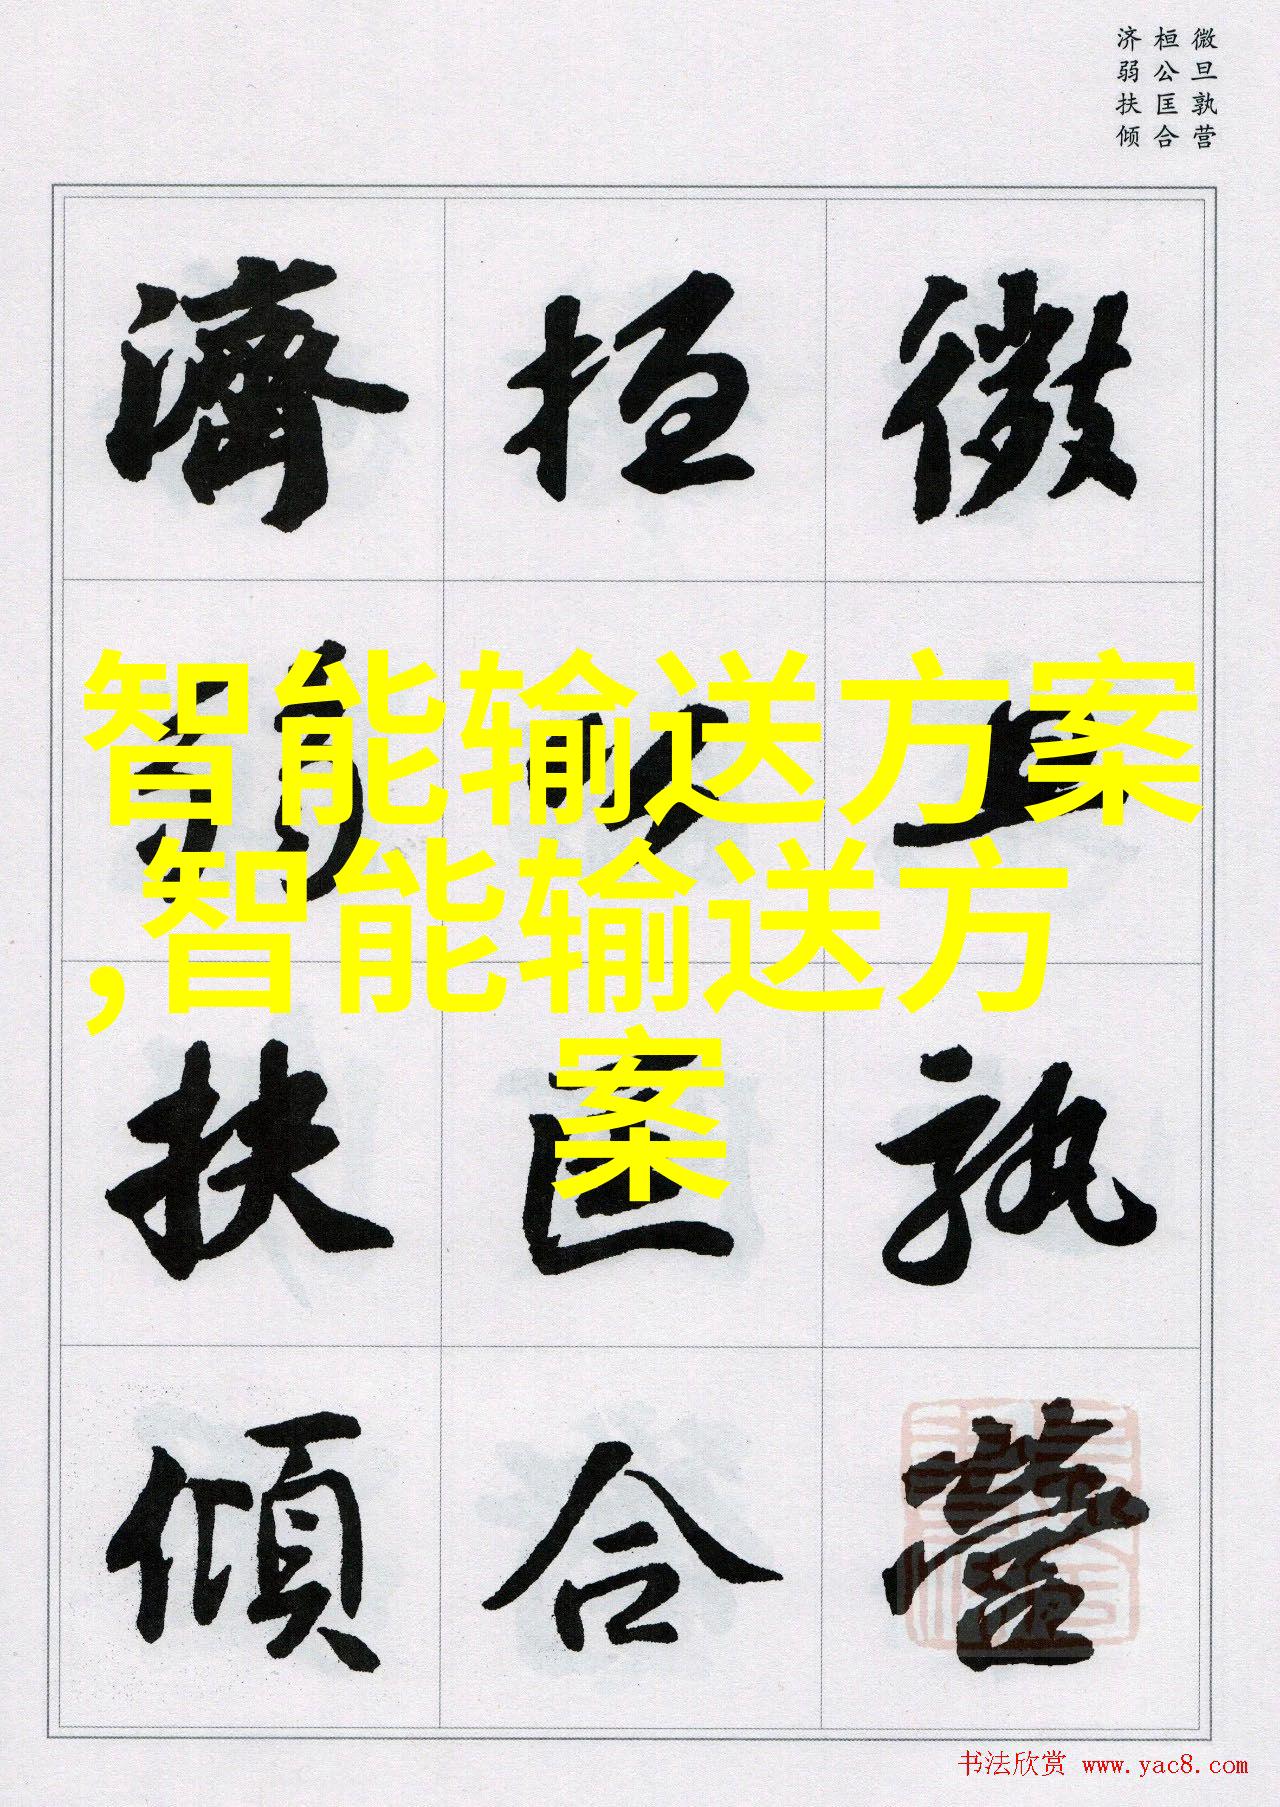 微旦孰营
桓公匡合
济弱扶倾
微旦孰營
桓公匡合
濟弱扶傾
智能输送方案
,智能输送方
案
书法欣赏 www.yac8.com